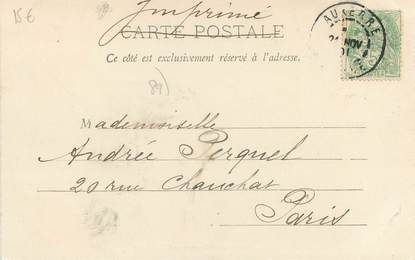 15 €
Imprimé
CARTE POSTALE
Ce côté est exclusivement réservé à l'adresse.
AUXERRE
NOV
Mademoiselle
Andrée Perquel
20 rue Chauchat
Paris